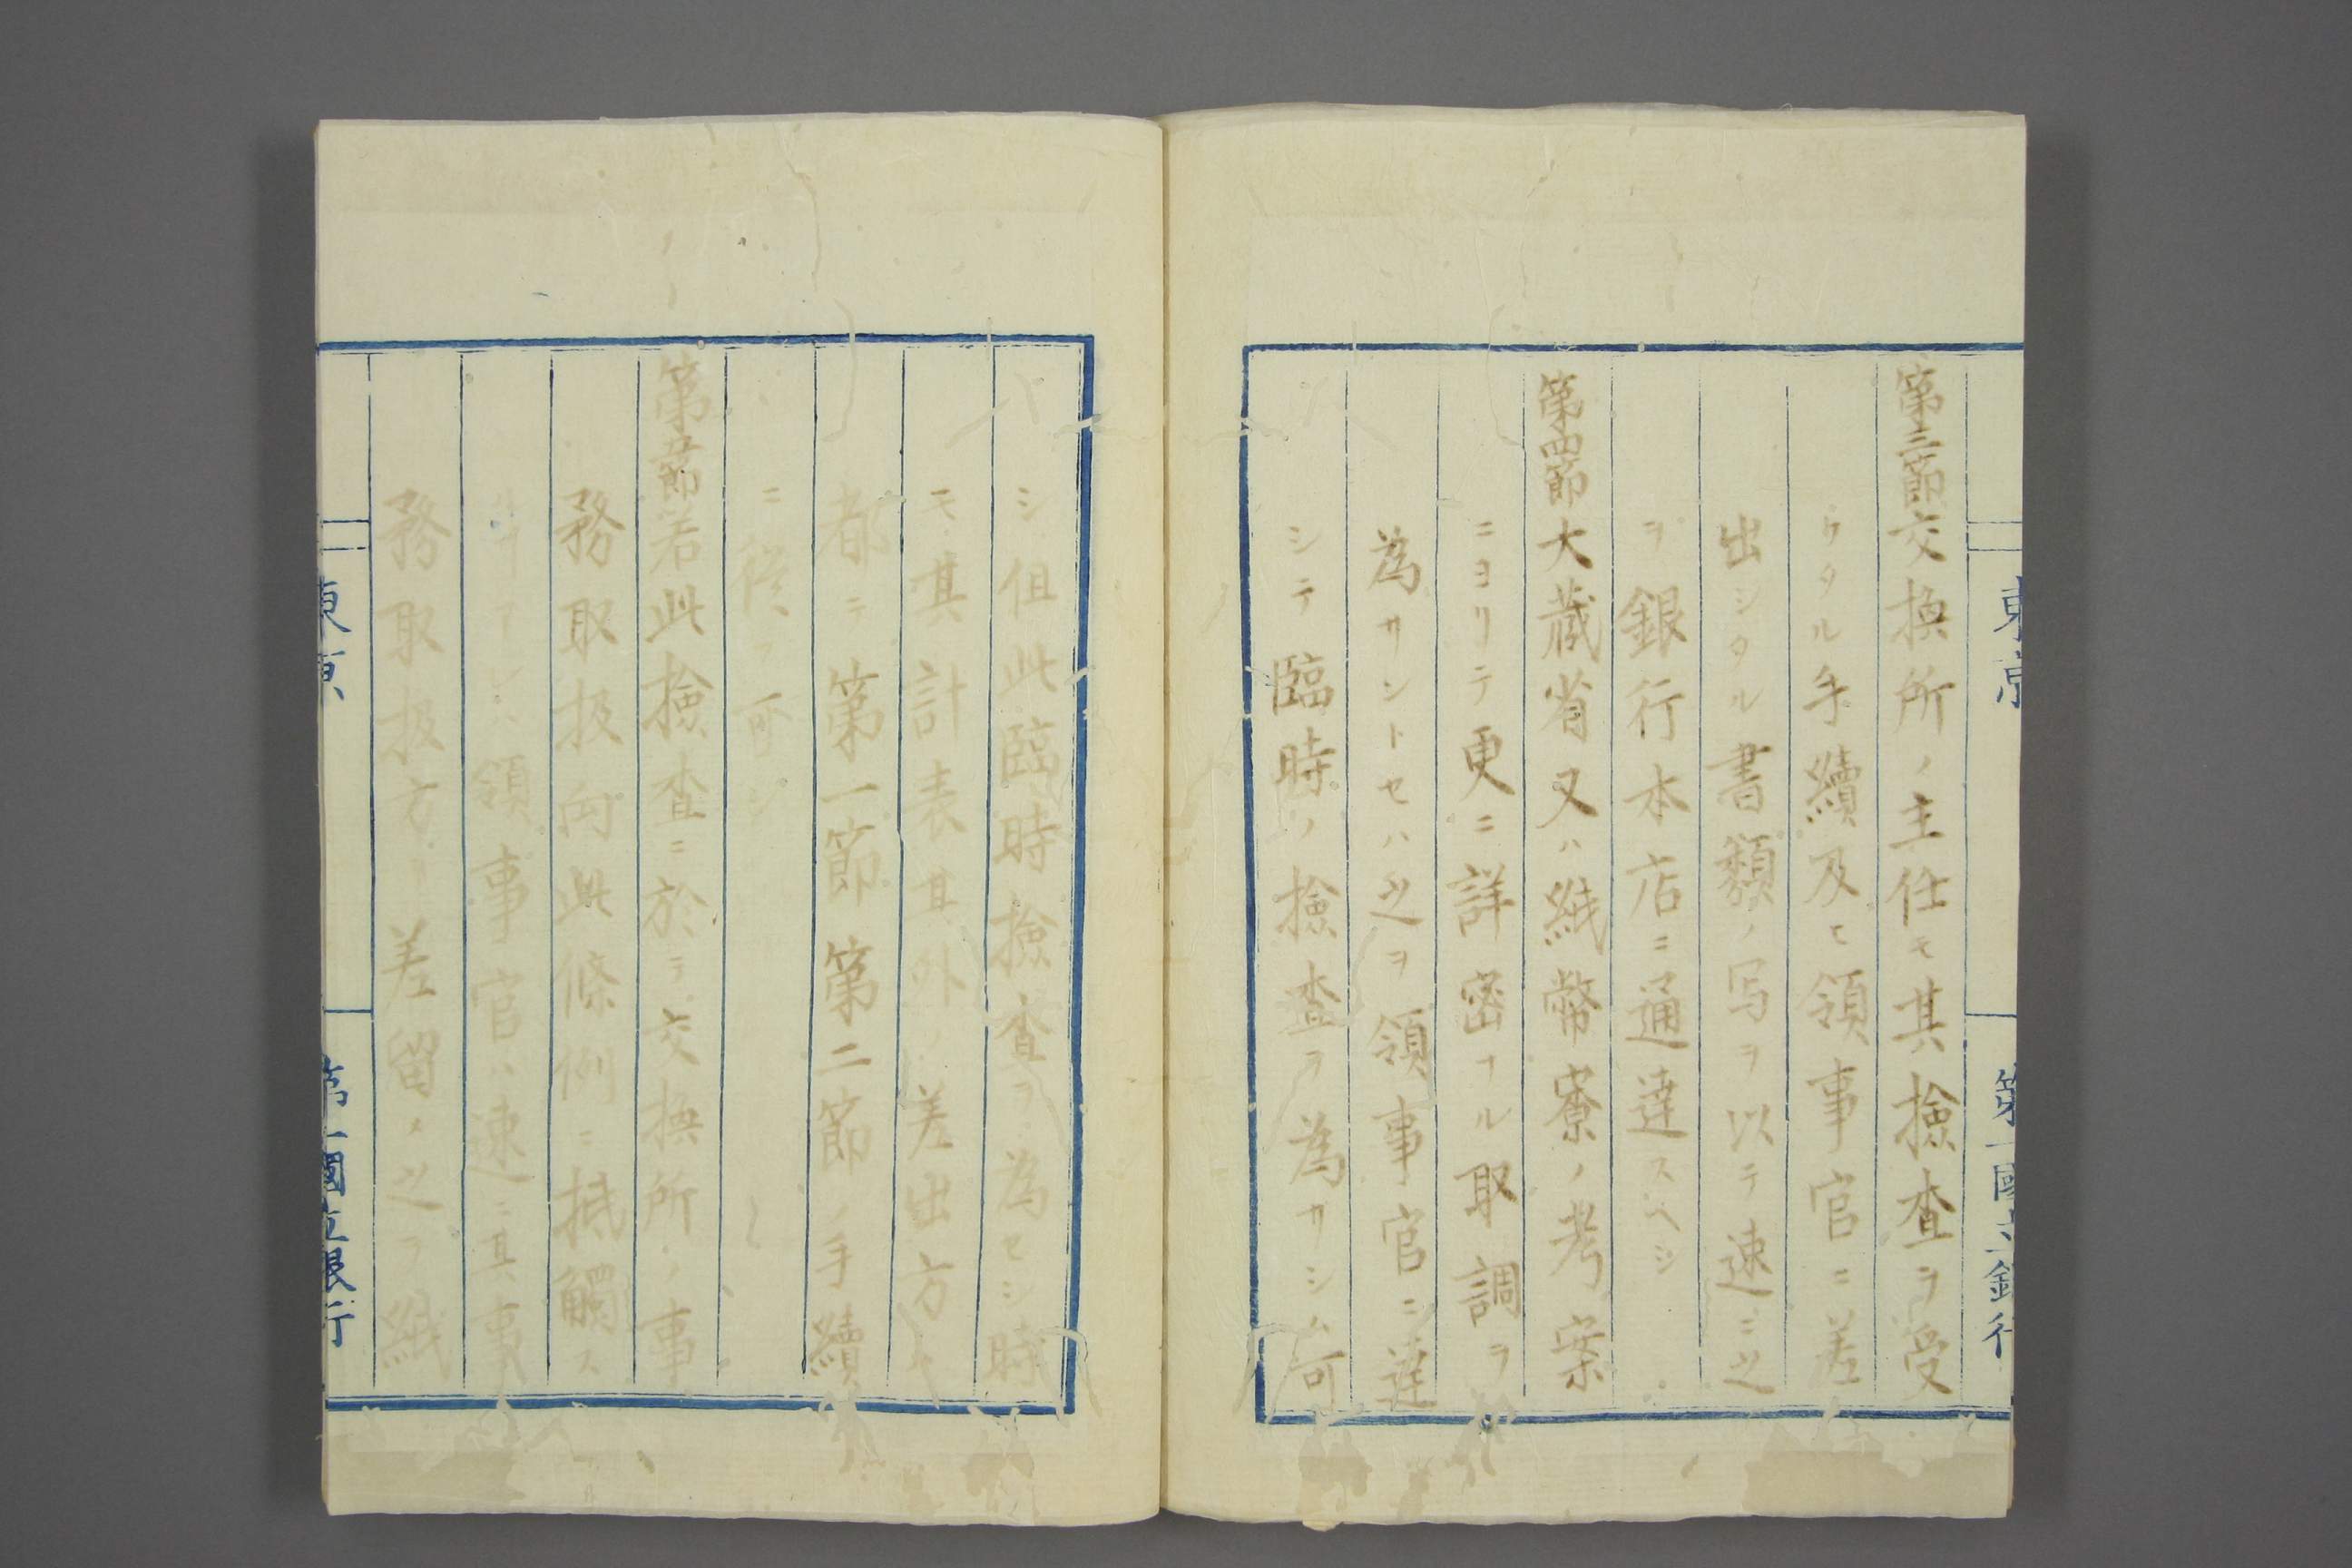 東京
第一國立銀行
第三節交換所ノ主任モ其檢査ヲ受
ケタル手續及ヒ領事官ニ差
出シタル書類ノ写ヲ以テ速ニ之
ヲ銀行本店ニ通達スヘシ
第四節大蔵省又ハ紙幣寮ノ考案
ニヨリテ更ニ詳密ナル取調ヲ
為サントセハ之ヲ領事官ニ達
シテ臨時ノ檢査ヲ為サシム可
シ但此臨時檢査ヲ為セシ時
モ其計表其外ノ差出方ハ
都テ第一節第二節ノ手續
ニ従フ可シ
第五節若此檢査ニ於テ交換所ノ事
務取扱向此條例ニ抵觸ス
領事官ハ速ニ其事
務取扱方ヲ差留メ之ヲ紙
東京
第一國立銀行